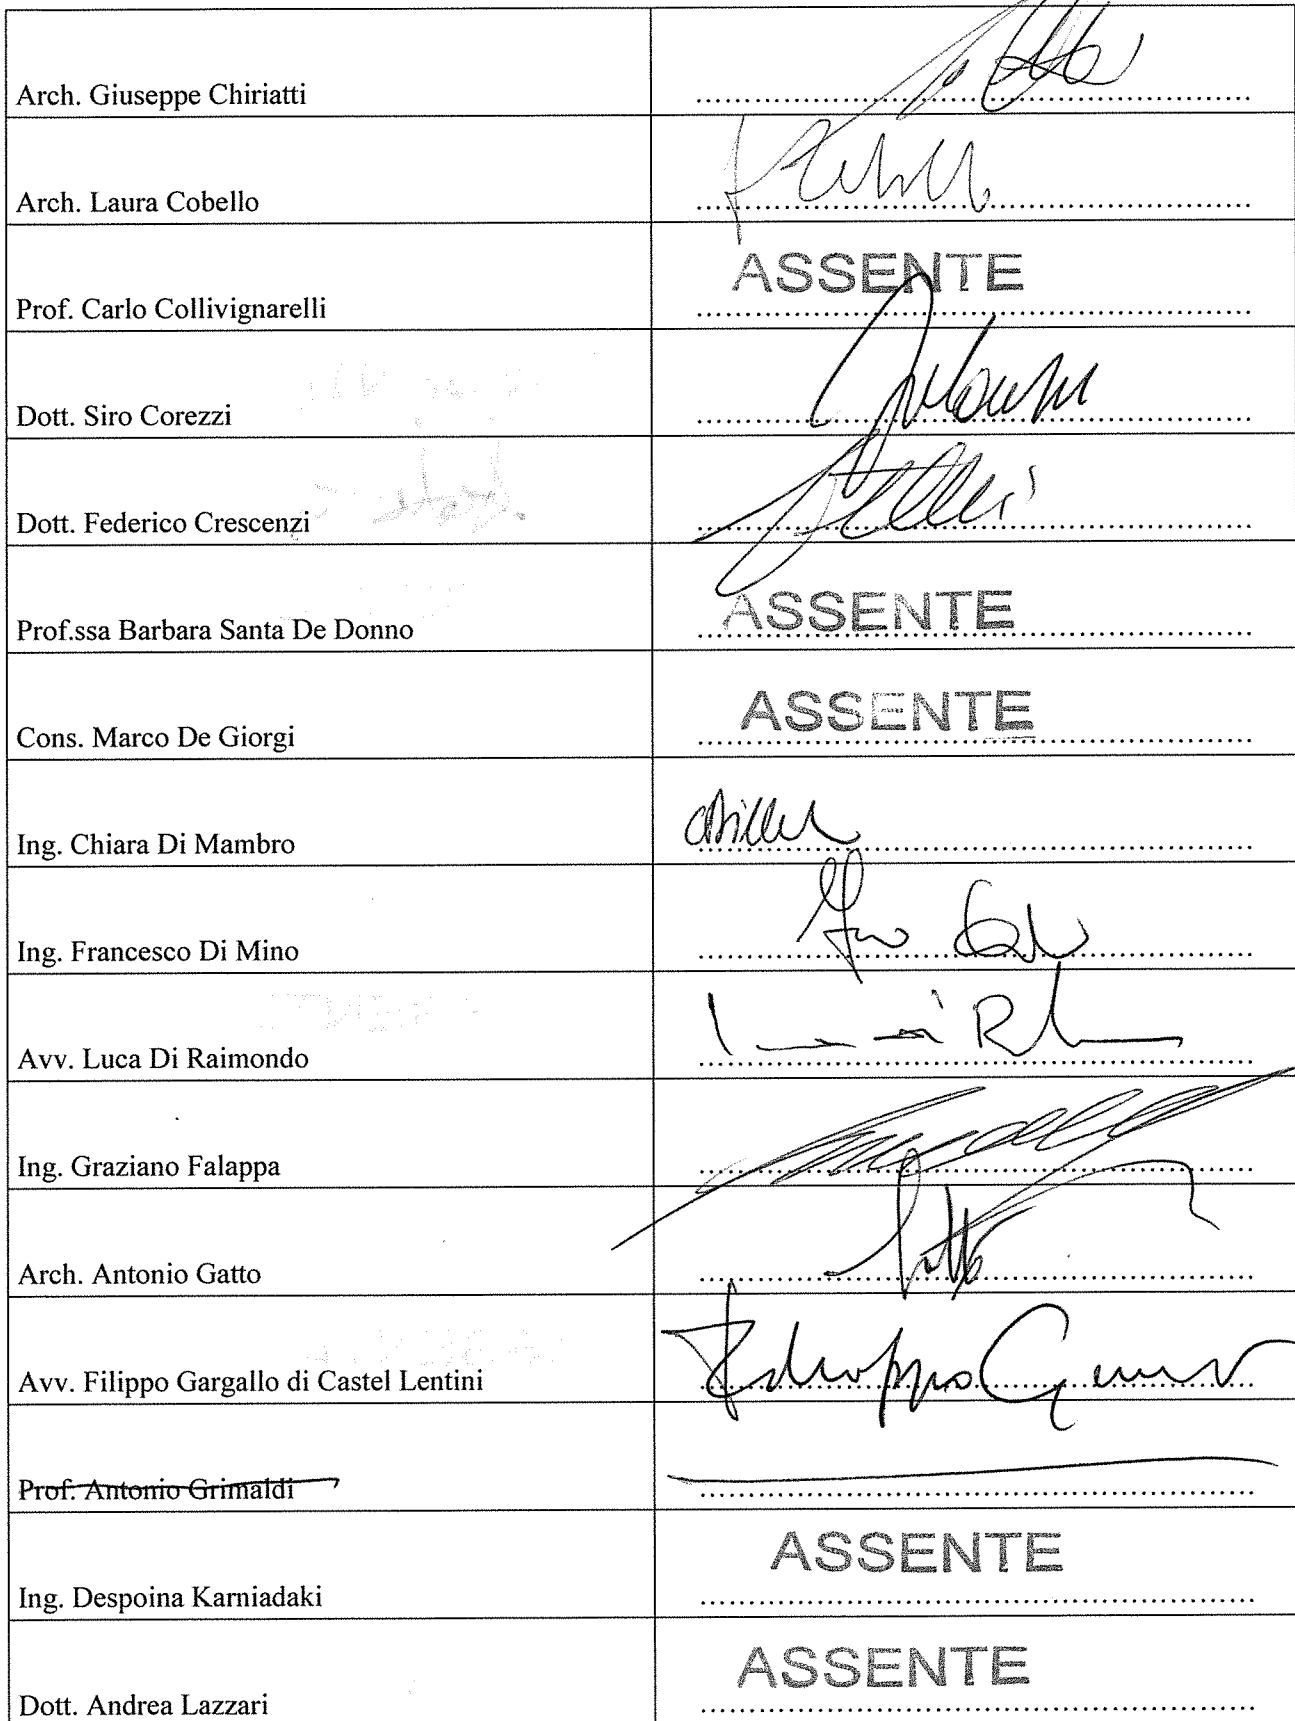 Arch. Giuseppe Chiriatti
Arch. Laura Cobello
ASSENTE
Prof. Carlo Collivignarelli
Dott. Siro Corezzi
Dott. Federico Crescenzi
ASSENTE
Prof.ssa Barbara Santa De Donno
ASSENTE
Cons. Marco De Giorgi
Ing. Chiara Di Mambro
Ing. Francesco Di Mino
Avv. Luca Di Raimondo
Ing. Graziano Falappa
Arch. Antonio Gatto
Avv. Filippo Gargallo di Castel Lentini
Prof. Antonio Grimaldi
ASSENTE
Ing. Despoina Karniadaki
ASSENTE
Dott. Andrea Lazzari